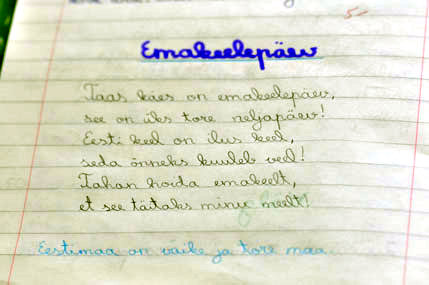 5-
Emakeelepäev
Taas käes on emakeelepäev,
see on üks tore neljapäev!
Eesti keel on ilus keel,
seda õnneks kuuleb veel!
Tahan hoida emakeelt,
et see täitaks minu meelt!
Eestimaa on väike ja tore maa.